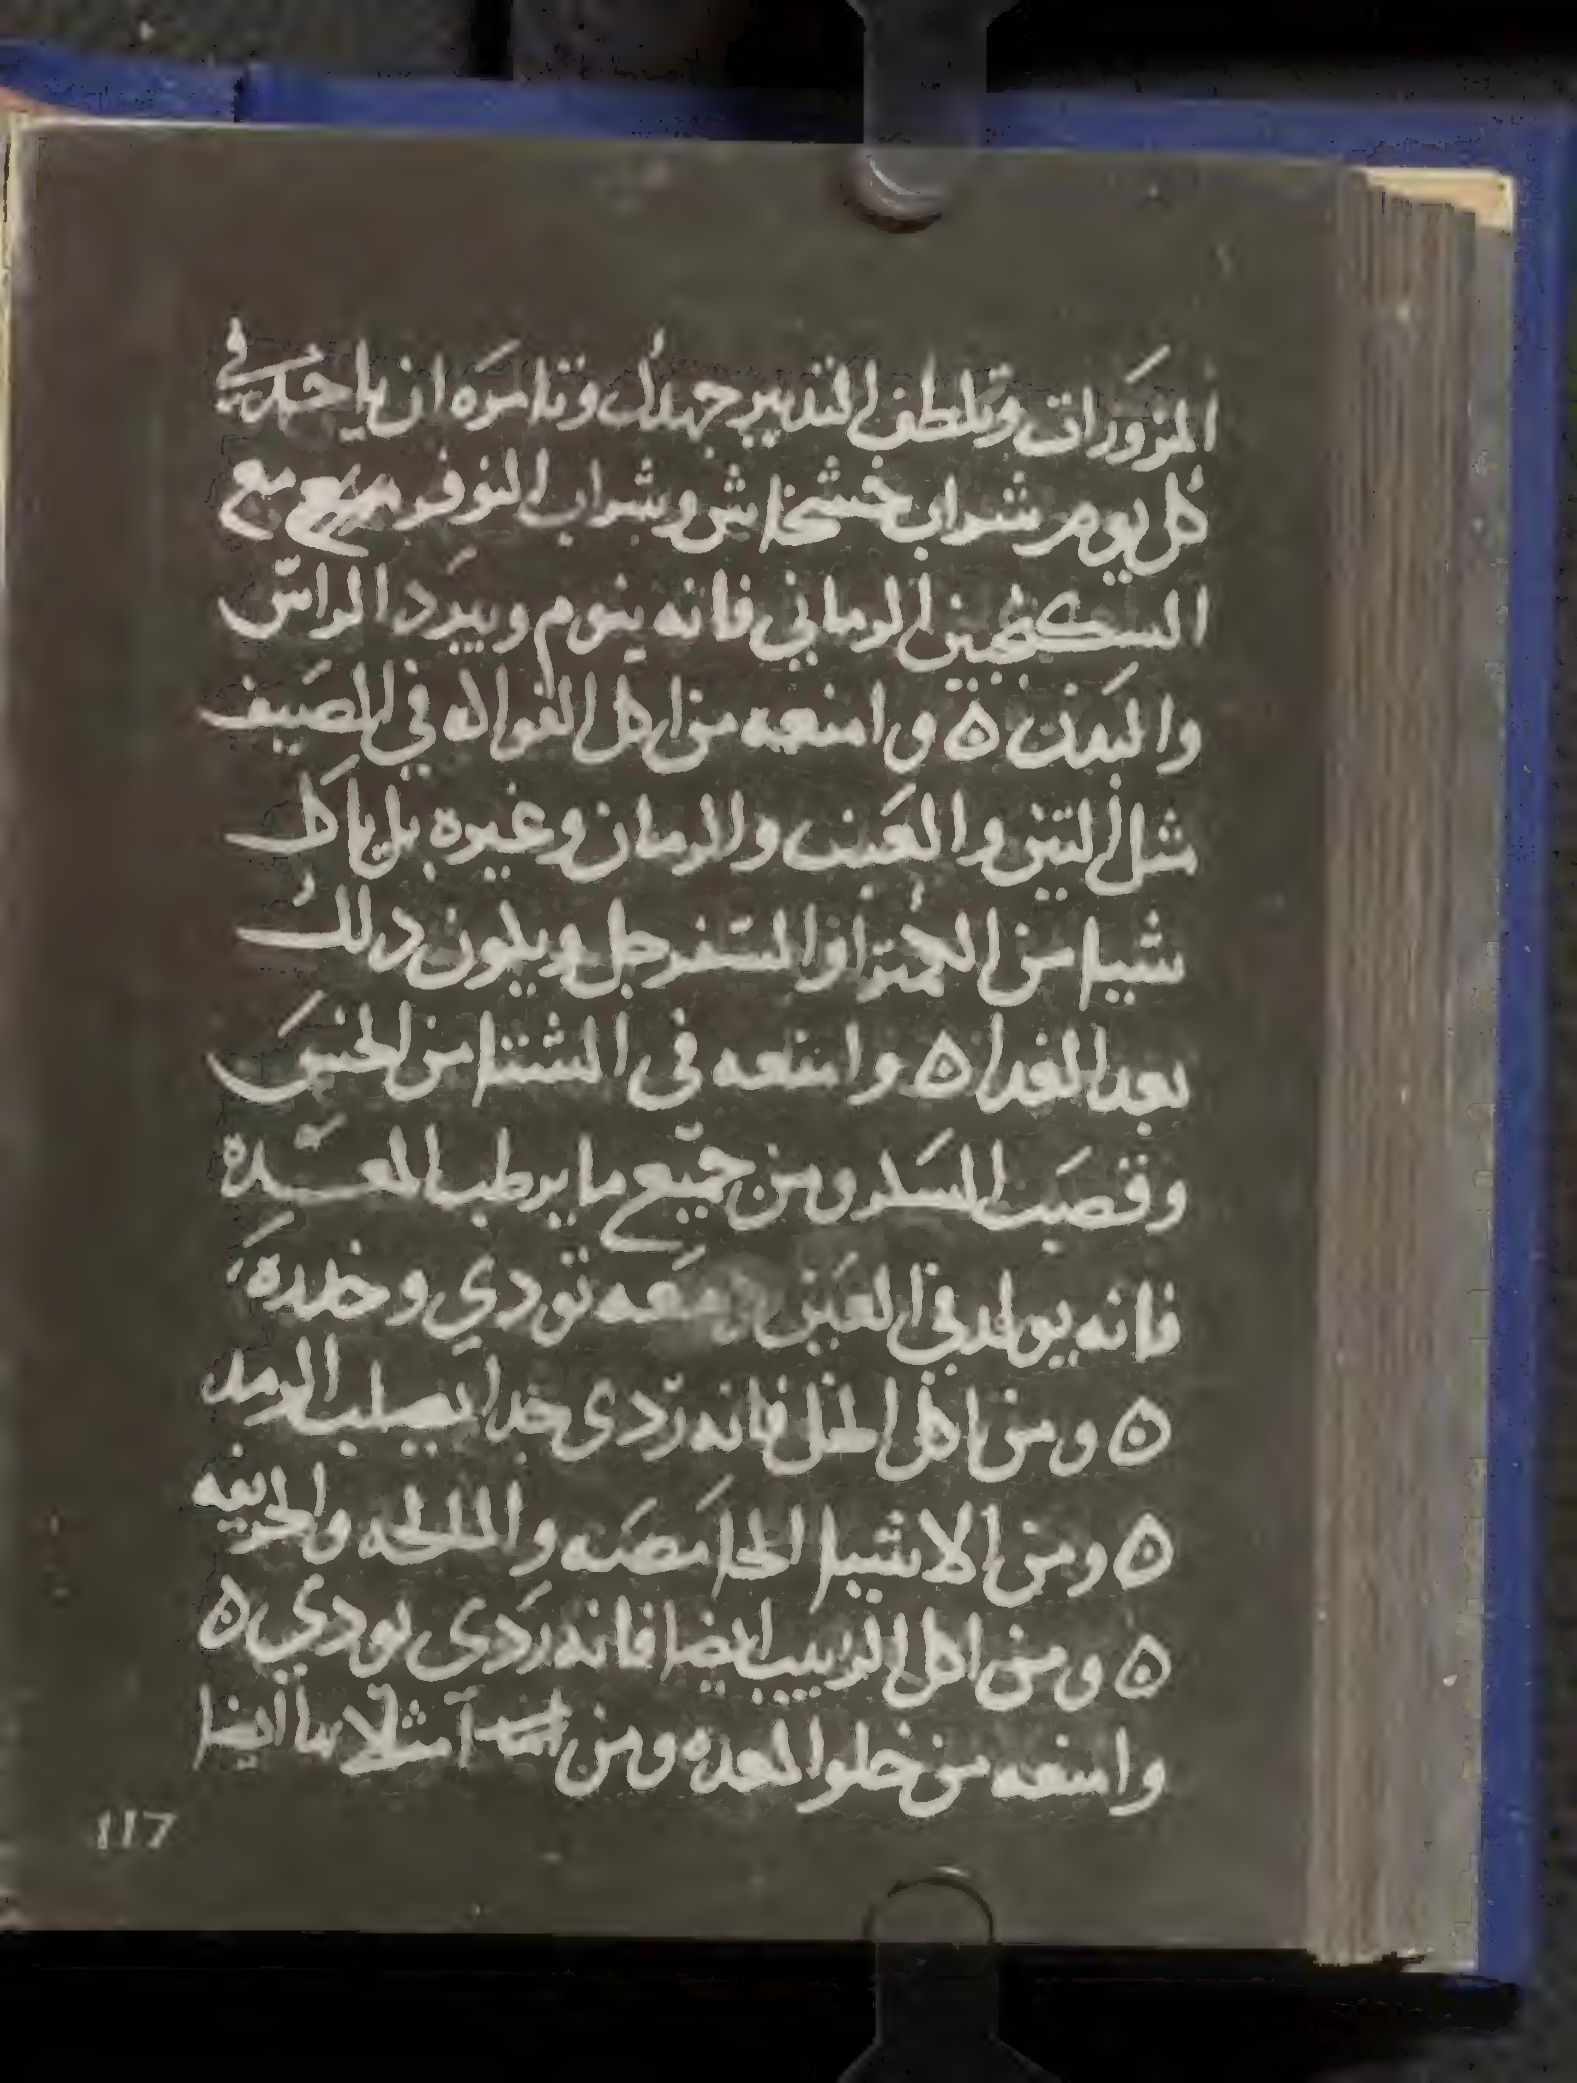 المزورات وتلطف التدبير جهدك وتامره ان ياخد في
كل يوم شراب خشخاش وشراب النوفر مع
السكنجبين الرماني فانه ينوم ويبرد الراس
والبدن ٥ وامنعه من اكل الفواكه في الصيف
مثل التين والعنب والرمان وغيره بل ياكل
شيا من الكمترا والسفرجل ويكون دلك
بعد الغدا ٥ وامنعه في الشتا من الخس
وقصب السكر ومن جميع ما يرطب المعده
فانه يولد في العين دمعه تودي وخلده
٥ ومن اكل الخل فانه ردي جدا يصلب الرمد
٥ ومن الاشيا الحامضه والمالحه والحريفه
٥ ومن اكل الزبيب ايضا فانه ردي يودي ٥
وامنعه من خلو المعده ومن امتلايها ايضا
117